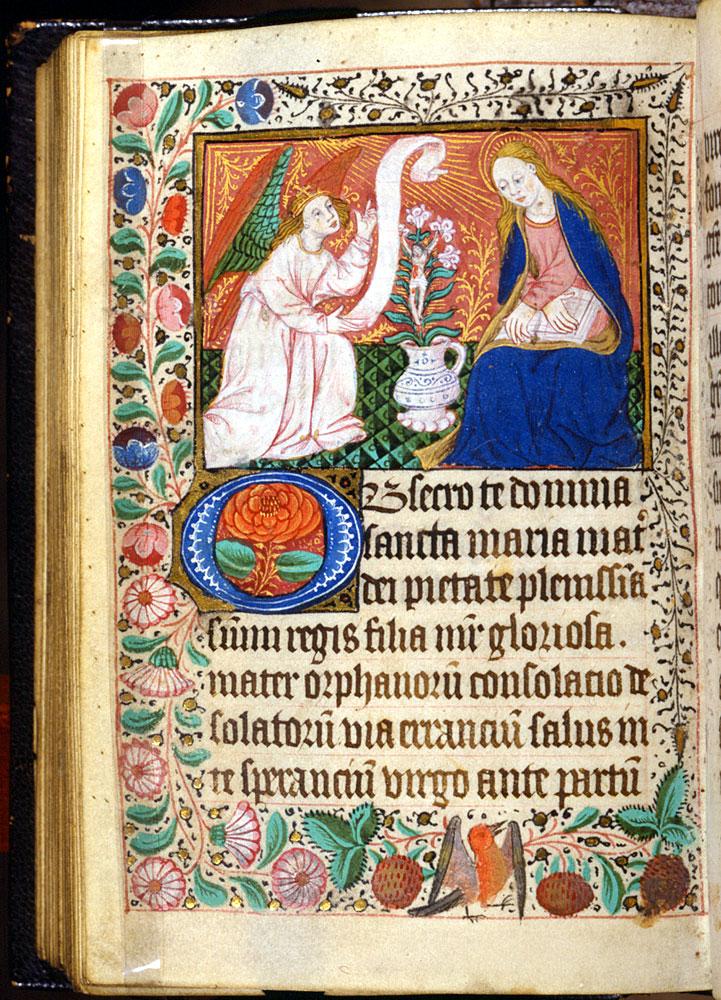 OBsecro te domina
sancta maria mat᷑
dei pietate plenissīa
sūmi regis filia mr̄ gloriosa .
mater orphanorū consolacio de
solatorū via erranciū salus in
te speranciū virgo ante partū